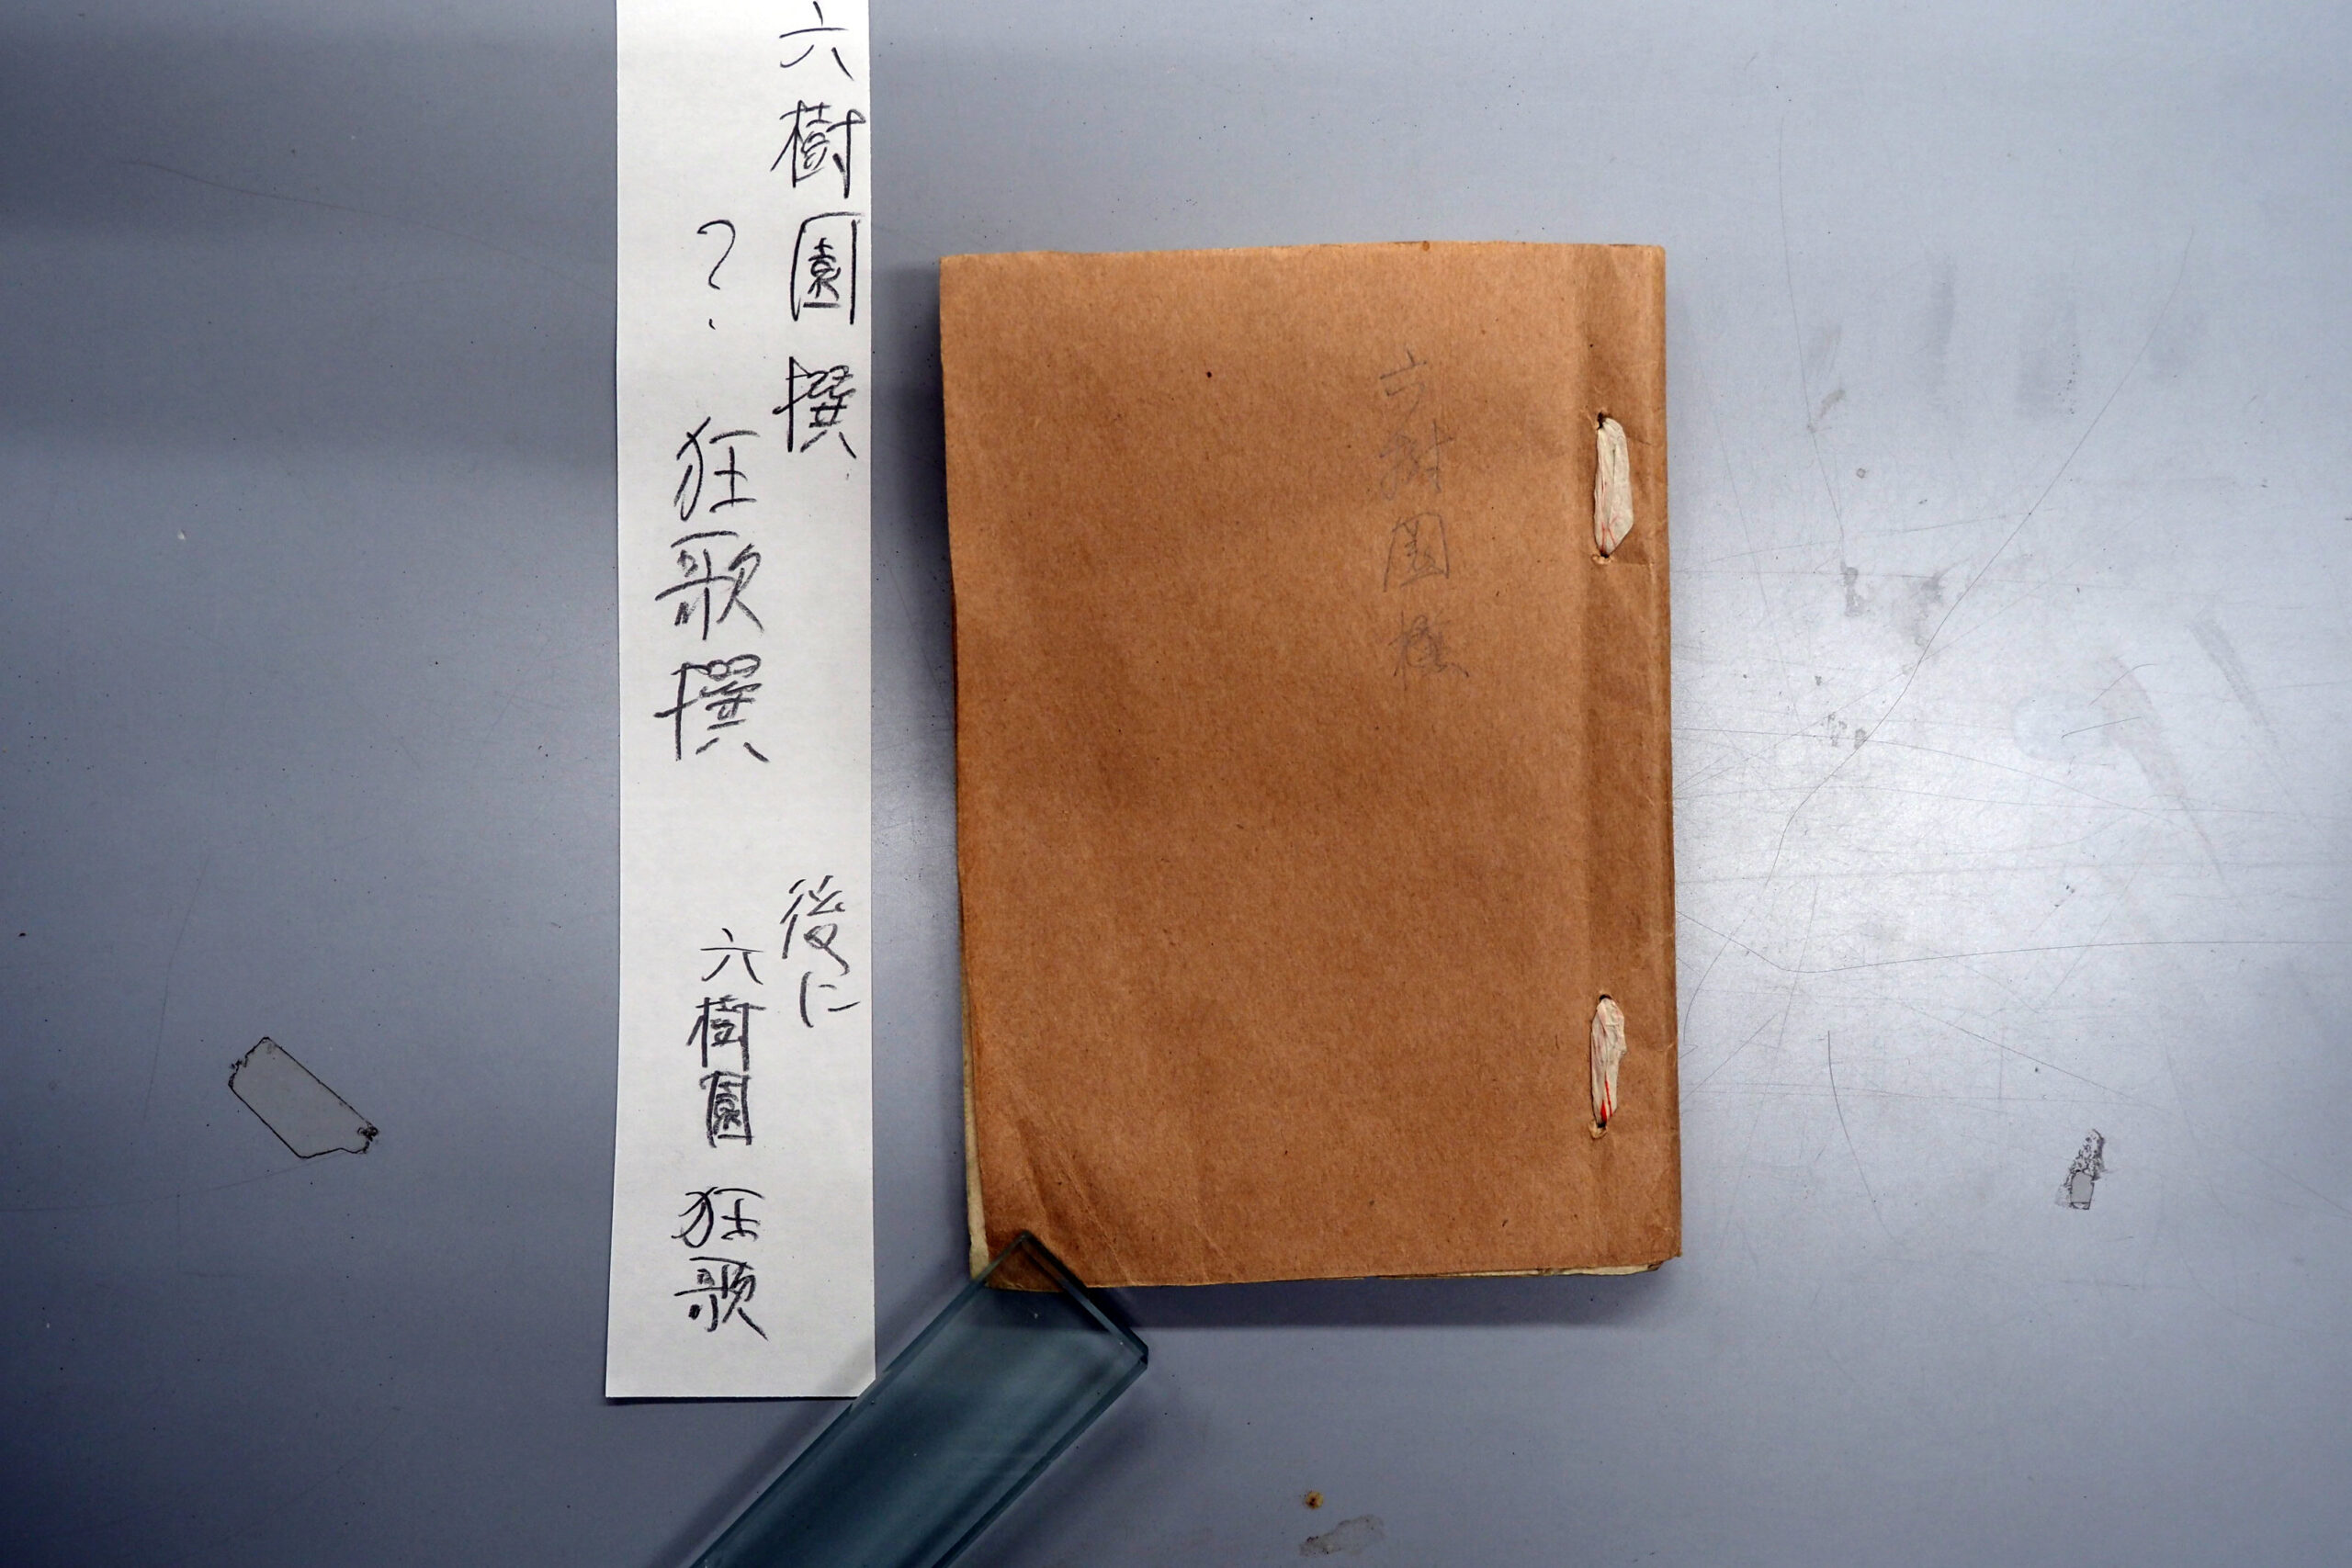 六樹園撰
?狂歌撰
後に
六樹園狂歌
六樹園撰